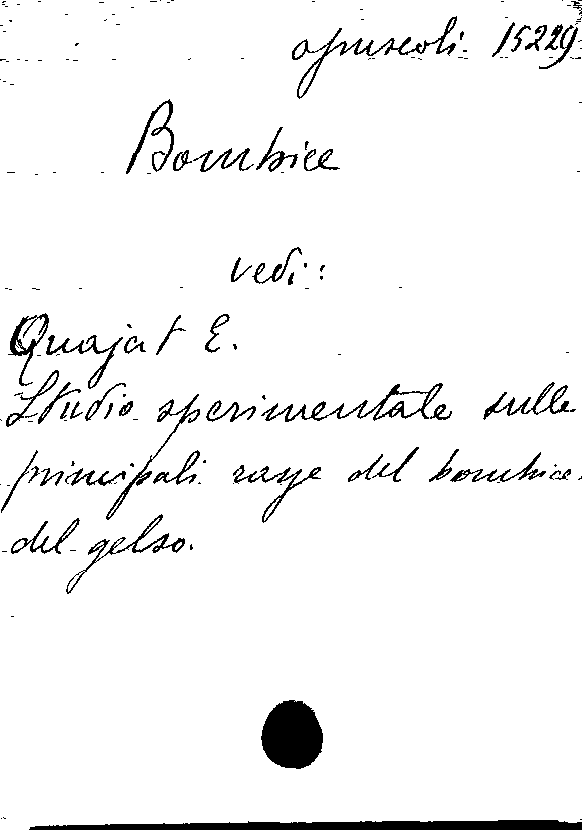 opuscoli. 15229
Bombice
vedi:
Quajat E.
Studio sperimentale sulle
principali razze del bombice
del gelso.